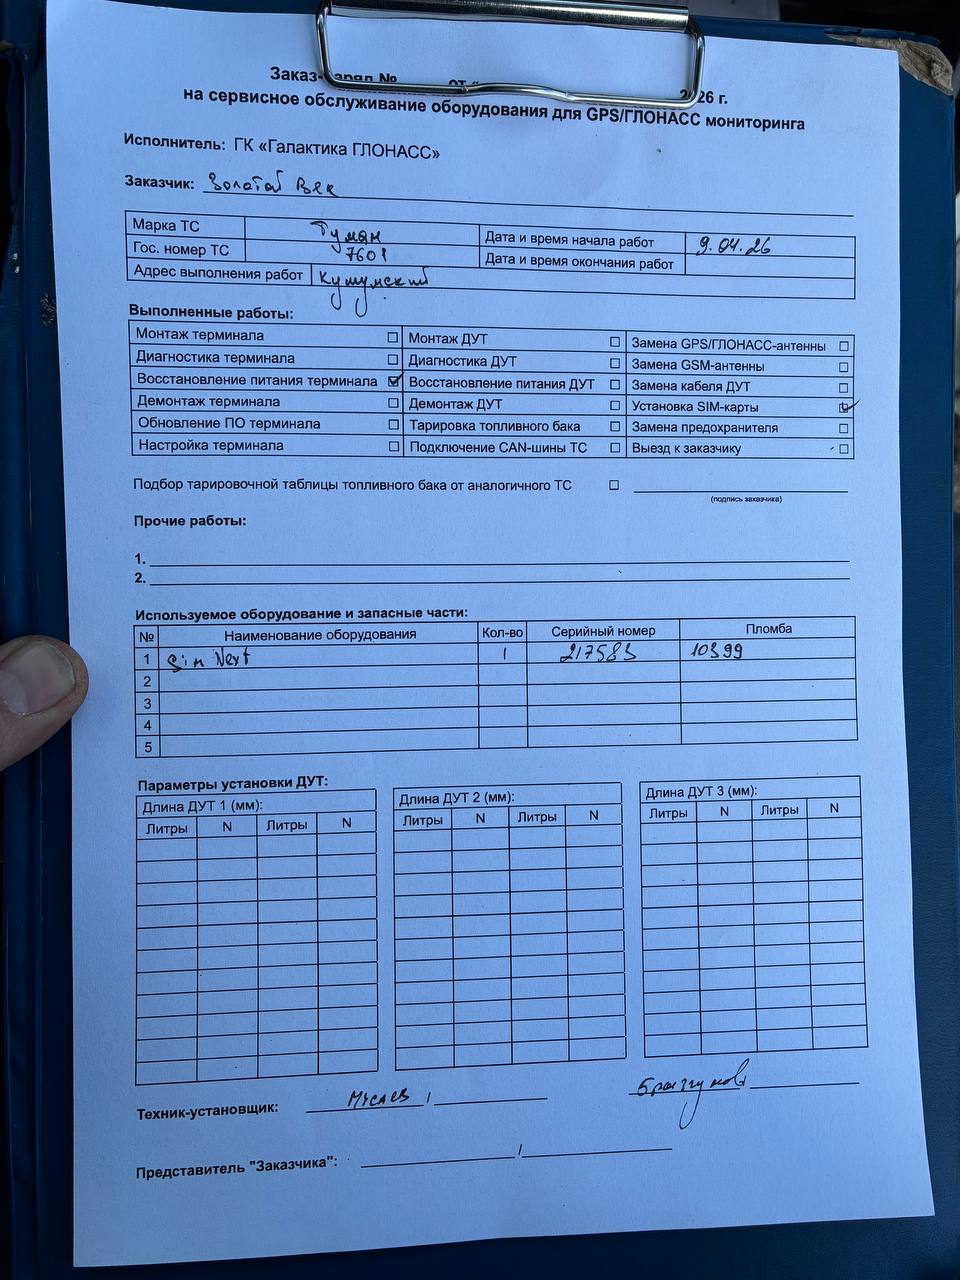 Заказ-наряд № от " 2026 г.
на сервисное обслуживание оборудования для GPS/ГЛОНАСС мониторинга
Исполнитель: ГК «Галактика ГЛОНАСС»
Заказчик: Золотой Век
Марка ТС Туман Дата и время начала работ 9.04.26
Гос. номер ТС 7601 Дата и время окончания работ
Адрес выполнения работ
Выполненные работы:
Монтаж терминала ☐ Монтаж ДУТ ☐ Замена GPS/ГЛОНАСС-антенны ☐
Диагностика терминала ☐ Диагностика ДУТ ☐ Замена GSM-антенны ☐
Восстановление питания терминала ☑ Восстановление питания ДУТ ☐ Замена кабеля ДУТ ☐
Демонтаж терминала ☐ Демонтаж ДУТ ☐ Установка SIM-карты ☑
Обновление ПО терминала ☐ Тарировка топливного бака ☐ Замена предохранителя ☐
Настройка терминала ☐ Подключение CAN-шины ТС ☐ Выезд к заказчику ☐
Подбор тарировочной таблицы топливного бака от аналогичного ТС ☐
(подпись заказчика)
Прочие работы:
1.
2.
Используемое оборудование и запасные части:
№ Наименование оборудования Кол-во Серийный номер Пломба
1 Sim Next 1 217583 10399
2
3
4
5
Параметры установки ДУТ:
Длина ДУТ 1 (мм): Длина ДУТ 2 (мм): Длина ДУТ 3 (мм):
Литры N Литры N Литры N Литры N Литры N Литры N
Техник-установщик: Мусаев /
Представитель "Заказчика": /